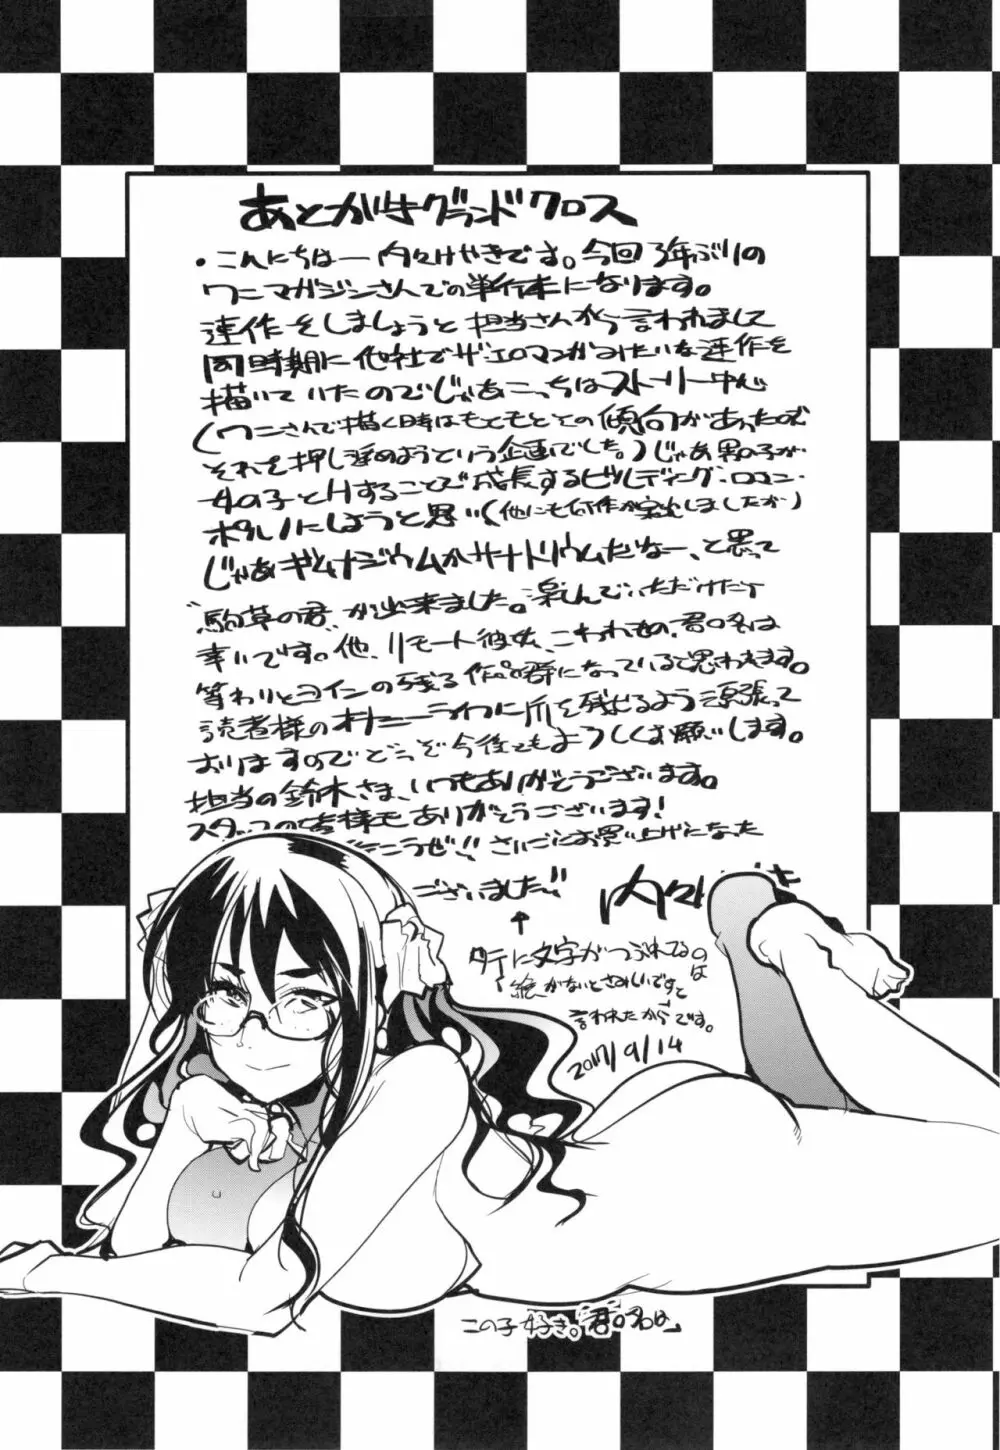 あとがきグランドクロス
・こんにちはー内々けやきです。今回3年ぶりの
ワニマガジンさんでの単行本になります。
連作をしましょうと担当さんから言われまして
同時期に他社でザ・エロマンガみたいな連作を
描いていたのでじゃあこっちはストーリー中心
(ワニさんで描く時はもともとその傾向があったので
それを押し進めようという企画でした。)じゃあ男の子が
女の子とHすることで成長するビルディング・ロマン・
ポルノにしようと思い(他にも何作か実出しましたが)
じゃあギムナジウムかサナトリウムだなー、と思って
"駒草の君"が出来ました。楽しんでいただけたら
幸いです。他、リモート彼女、こわれもの、君の名は
等わりとヨインの残る作品群になっていると思われます。
読者様のオトニーライフに爪を残せるよう頑張って
おりますのでどうぞ今後ともよろしくお願いします。
担当の鈴木さま、いつもありがとうございます。
スタッフの皆様もありがとうございます!
こうぜ!! さいごにお買い上げになった
ございました!!
内々
↑
タテに文字がつぶれてるのは
絵がないとさみしいですと
言われたからです。
2017/9/14
この子好き。「君の名は」